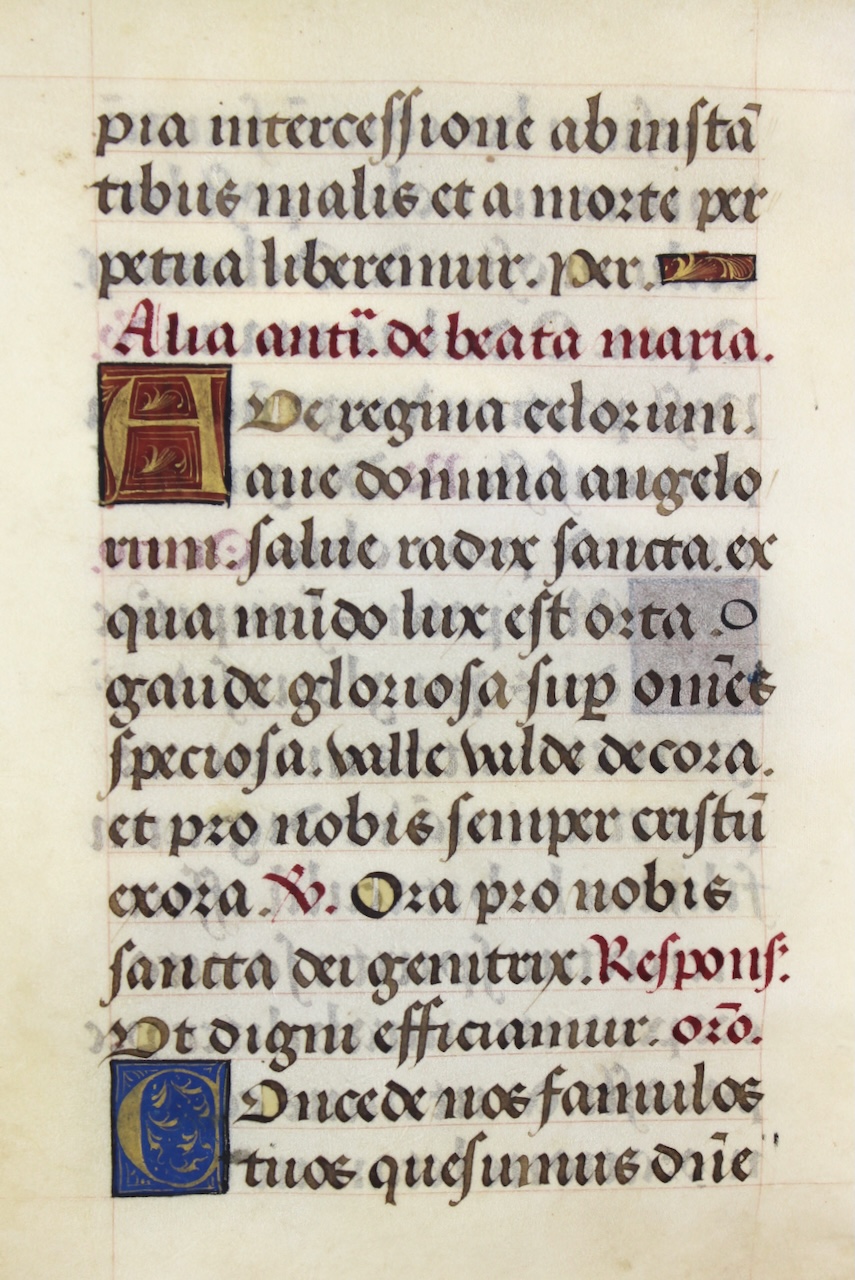 pia intercessione ab instā
tibus malis et a morte per
petua liberemur. Per.
Alia anti. de beata maria.
AVe regina celorum.
aue domina angelo
rum. salue radix sancta. ex
qua mūdo lux est orta . O
gaude gloriosa suꝑ om̄es
speciosa. valle valde decora.
et pro nobis semper cristū
exora. ℣. Ora pro nobis
sancta dei genitrix. Respons.
Vt digni efficiamur. orō.
COncede nos famulos
tuos quesumus dn̄e